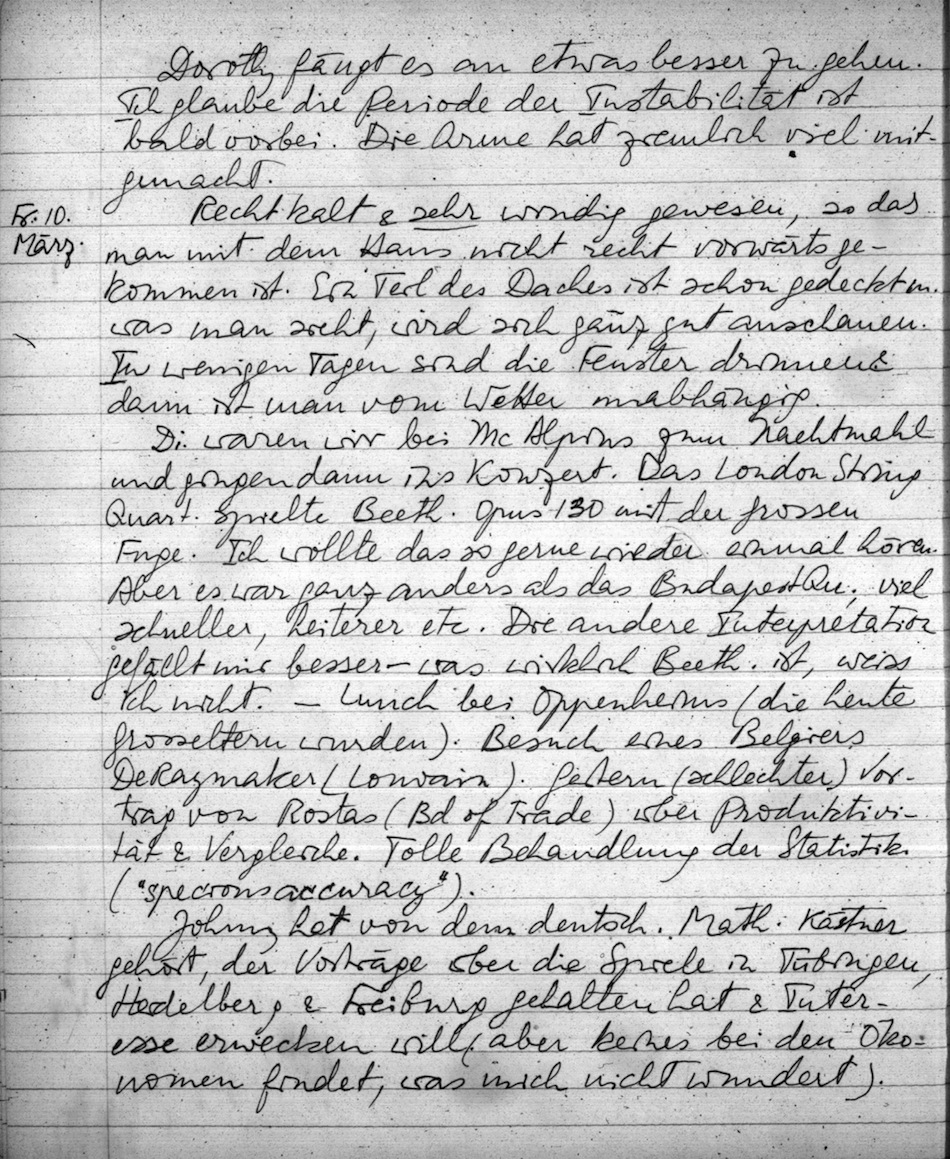 Dorothy fängt es an etwas besser zu gehen.
Ich glaube die Periode der Instabilität ist
bald vorbei. Die Arme hat ziemlich viel mit-
gemacht.
Fr. 10.
März.
Recht kalt & sehr windig gewesen, so das
man mit dem Haus nicht recht vorwärts ge-
kommen ist. Ein Teil des Daches ist schon gedeckt u.
was man sieht, wird sich ganz gut anschauen.
In wenigen Tagen sind die Fenster drinnen &
dann ist man vom Wetter unabhängig.
Di. waren wir bei McAlpins zum Nachtmahl
und gingen dann ins Konzert. Das London String
Quart. spielte Beeth. Opus 130 mit der grossen
Fuge. Ich wollte das so gerne wieder einmal hören.
Aber es war ganz anders als das Budapest Qu., viel
schneller, heiterer etc. Die andere Interpretation
gefällt mir besser – was wirklich Beeth. ist, weiss
ich nicht. – Lunch bei Oppenheims (die heute
Grosseltern wurden). Besuch eines Belgiers
DeRaymaker (Louvain). Gestern (schlechter) Vor-
trag von Rostas (Bd of Trade) über Produktivi-
tät & Vergleiche. Tolle Behandlung der Statistik
("specious accuracy").
Johnny hat von dem deutsch. Math. Kästner
gehört, der Vorträge über die Spiele in Tübingen,
Heidelberg & Freiburg gehalten hat & Inter-
esse erwecken will (aber keines bei den Öko-
nomen findet, was mich nicht wundert).